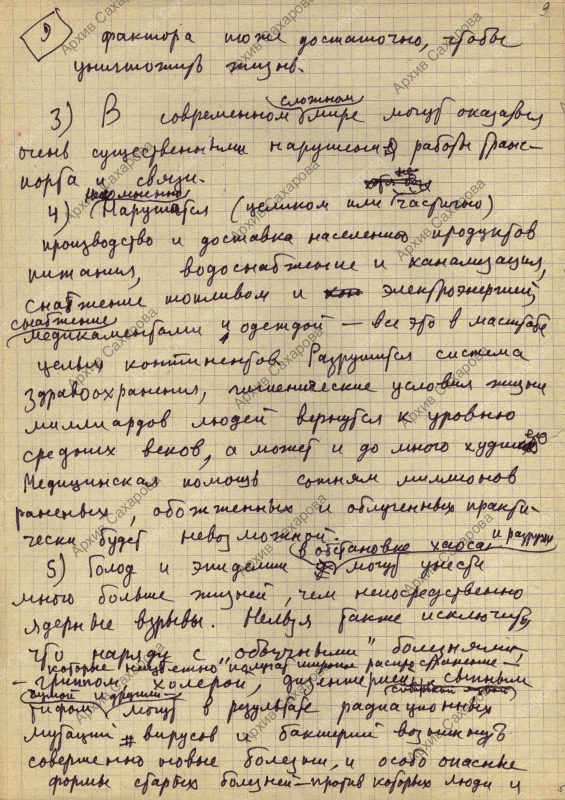 9
9
фактора тоже достаточно, чтобы
уничтожить жизнь.
3) В современном сложном мире могут оказаться
очень существенными нарушения работы транс-
порта и связи.
4) Нарушится (целиком или частично)
производство и доставка населению продуктов
питания, водоснабжение и канализация,
снабжение топливом и электроэнергией,
снабжение медикаментами и одеждой — все это в масштабе
целых континентов. Разрушится система
здравоохранения, гигиенические условия жизни
миллиардов людей вернутся к уровню
средних веков, а может и до много худшего
Медицинская помощь сотням миллионов
раненых, обожженных и облученных практи-
чески будет невозможной.
5) Голод и эпидемии в обстановке хаоса и разрухи могут унести
много больше жизней, чем непосредственно
ядерные взрывы. Нельзя также исключить,
что наряду с "обычными" болезнями,
которые неизбежно получат широкое распространение —
— гриппом, холерой, дизентерией, сыпным
тифом, чумой и другими — могут в результате радиационных
мутаций вирусов и бактерий возникнуть
совершенно новые болезни, и особо опасные
формы старых болезней — против которых люди и
Архив Сахарова